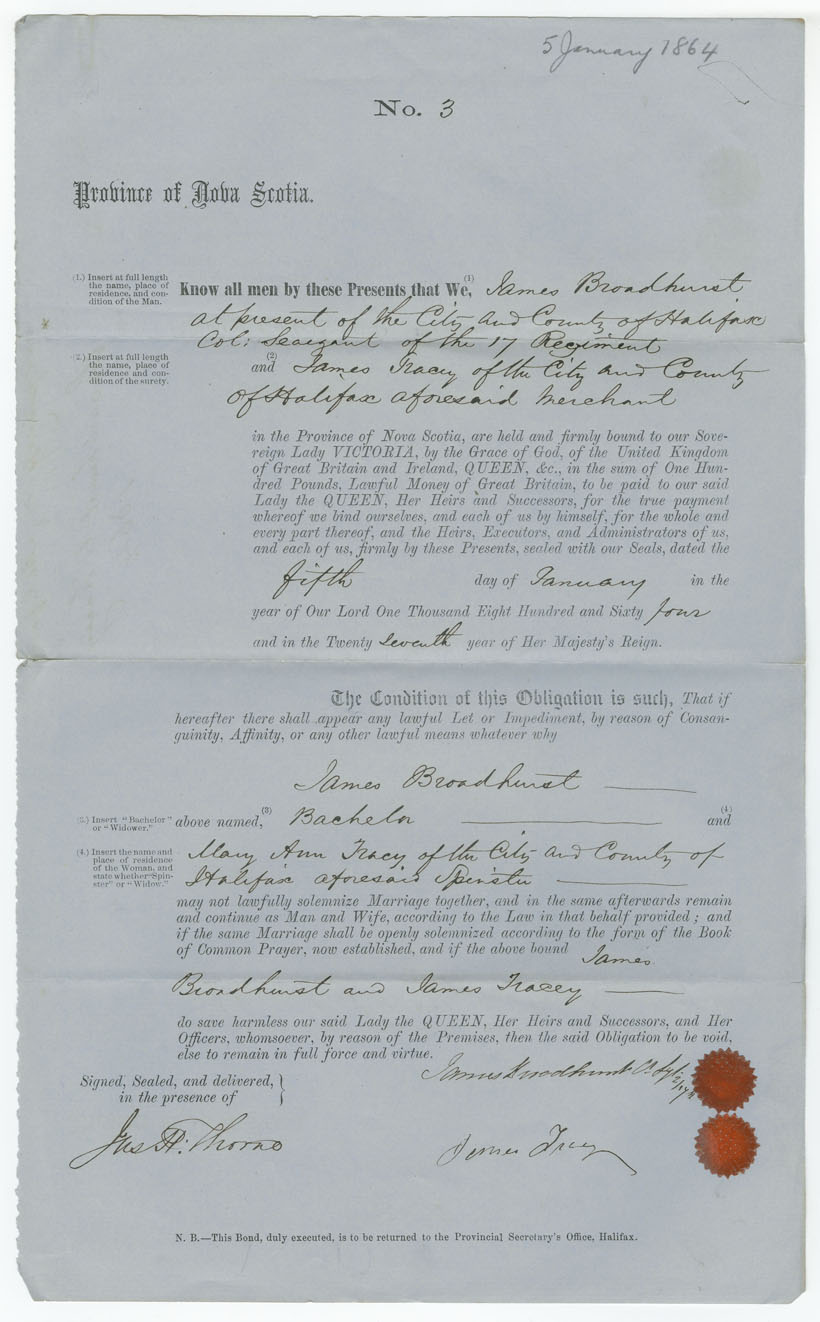 5 January 1864
No. 3
Province of Nova Scotia.
(1.) Insert at full length
the name, place of
residence, and con-
dition of the Man.
Know all men by these Presents that We,(1) James Broadhurst
at present of the City and County of Halifax
Col: Seargant of the 17 Regiment
(2.) Insert at full length
the name, place of
residence and con-
dition of the surety.
and(2) James Tracey of the City and County
of Halifax aforesaid Merchant
in the Province of Nova Scotia, are held and firmly bound to our Sove-
reign Lady VICTORIA, by the Grace of God, of the United Kingdom
of Great Britain and Ireland, QUEEN, &c., in the sum of One Hun-
dred Pounds, Lawful Money of Great Britain, to be paid to our said
Lady the QUEEN, Her Heirs and Successors, for the true payment
whereof we bind ourselves, and each of us by himself, for the whole and
every part thereof, and the Heirs, Executors, and Administrators of us,
and each of us, firmly by these Presents, sealed with our Seals, dated the
fifth day of January in the
year of Our Lord One Thousand Eight Hundred and Sixty four
and in the Twenty Seventh year of Her Majesty's Reign.
The Condition of this Obligation is such, That if
hereafter there shall appear any lawful Let or Impediment, by reason of Consan-
guinity, Affinity, or any other lawful means whatever why
James Broadhurst
(3.) Insert "Bachelor"
or "Widower."
above named,(3) Bachelor and(4)
(4.) Insert the name and
place of residence
of the Woman, and
state whether "Spin-
ster" or "Widow."
Mary Ann Tracy of the City and County of
Halifax aforesaid Spinster
may not lawfully solemnize Marriage together, and in the same afterwards remain
and continue as Man and Wife, according to the Law in that behalf provided; and
if the same Marriage shall be openly solemnized according to the form of the Book
of Common Prayer, now established, and if the above bound James
Broadhurst and James Tracey
do save harmless our said Lady the QUEEN, Her Heirs and Successors, and Her
Officers, whomsoever, by reason of the Premises, then the said Obligation to be void,
else to remain in full force and virtue.
James Broadhurst
Signed, Sealed, and delivered,
in the presence of
Jas H: Thorne
James Tracy
N. B.—This Bond, duly executed, is to be returned to the Provincial Secretary's Office, Halifax.